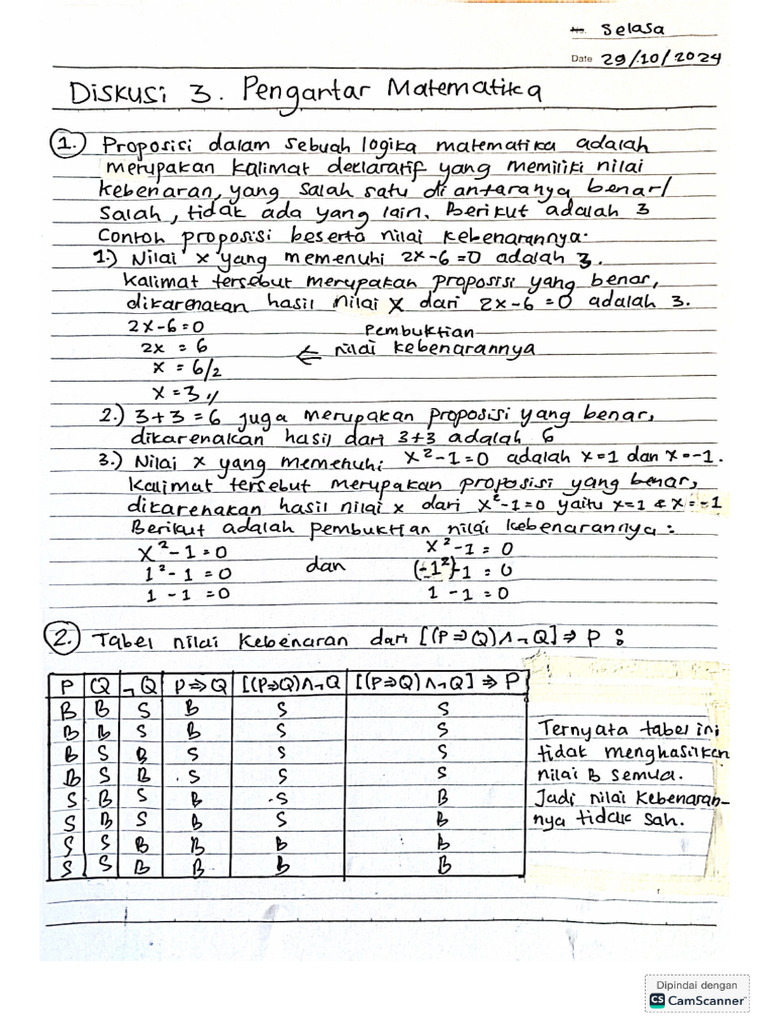 No. Selasa
Date 29/10/2024
Diskusi 3. Pengantar Matematika
1. Proposisi dalam sebuah logika matematika adalah
merupakan kalimat deklaratif yang memiliki nilai
kebenaran, yang salah satu diantaranya benar/
salah, tidak ada yang lain. Berikut adalah 3
Contoh proposisi beserta nilai kebenarannya:
1.) Nilai x yang memenuhi 2x-6=0 adalah 3.
Kalimat tersebut merupakan proposisi yang benar,
dikarenakan hasil nilai x dari 2x-6=0 adalah 3.
2x-6=0 Pembuktian
2x = 6 ← nilai kebenarannya
x = 6/2
x = 3 //
2.) 3+3 = 6 juga merupakan proposisi yang benar,
dikarenakan hasil dari 3+3 adalah 6
3.) Nilai x yang memenuhi x²-1=0 adalah x=1 dan x=-1.
Kalimat tersebut merupakan proposisi yang benar,
dikarenakan hasil nilai x dari x²-1=0 yaitu x=1 & x=-1
Berikut adalah pembuktian nilai kebenarannya:
x²-1=0 x²-1=0
1²-1=0 dan (-1²)-1=0
1-1=0 1-1=0
2. Tabel nilai kebenaran dari [(P⇒Q)∧¬Q]⇒P :
P Q ¬Q P⇒Q [(P⇒Q)∧¬Q [(P⇒Q)∧¬Q]⇒P
B B S B S S
B B S B S S
B S B S S S
B S B S S S
S B S B S B
S B S B S B
S S B B B B
S S B B B B
Ternyata tabel ini
tidak menghasilkan
nilai B semua.
Jadi nilai kebenaran-
nya tidak sah.
Dipindai dengan
CS CamScanner